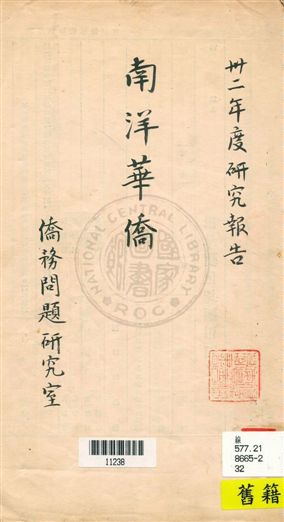 卅二年度研究報告
南洋華僑
僑務問題研究室
NATIONAL CENTRAL LIBRARY
ROC
國家圖書館
11238
線
577.21
8665-2
32
舊籍